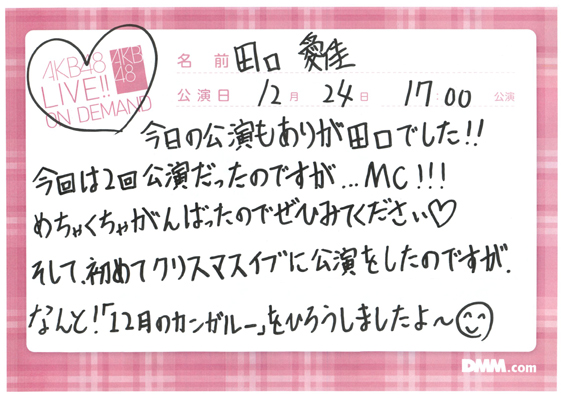 AKB48
LIVE!!
ON DEMAND
AKB
48
名 前 田口 愛佳
公演日 12月 24日 17:00 公演
今日の公演もありが田口でした!!
今回は2回公演だったのですが...MC!!!
めちゃくちゃがんばったのでぜひみてください♡
そして、初めてクリスマスイブに公演をしたのですが、
なんと!「12月のカンガルー」をひろうしましたよ〜
DMM.com